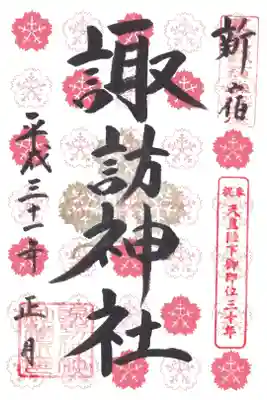 新宿
奉祝 天皇陛下御即位三十年
諏訪神社
平成三十一年 正月